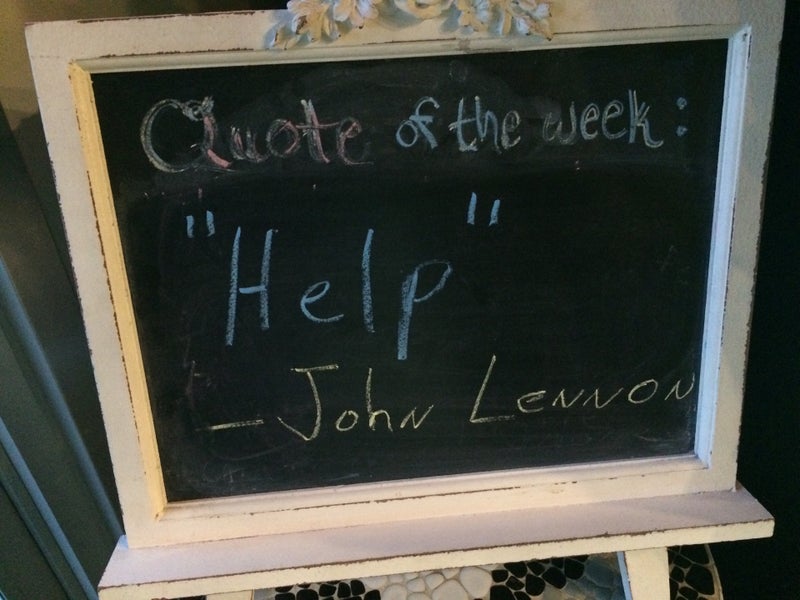 Quote of the week:
"Help"
- John Lennon